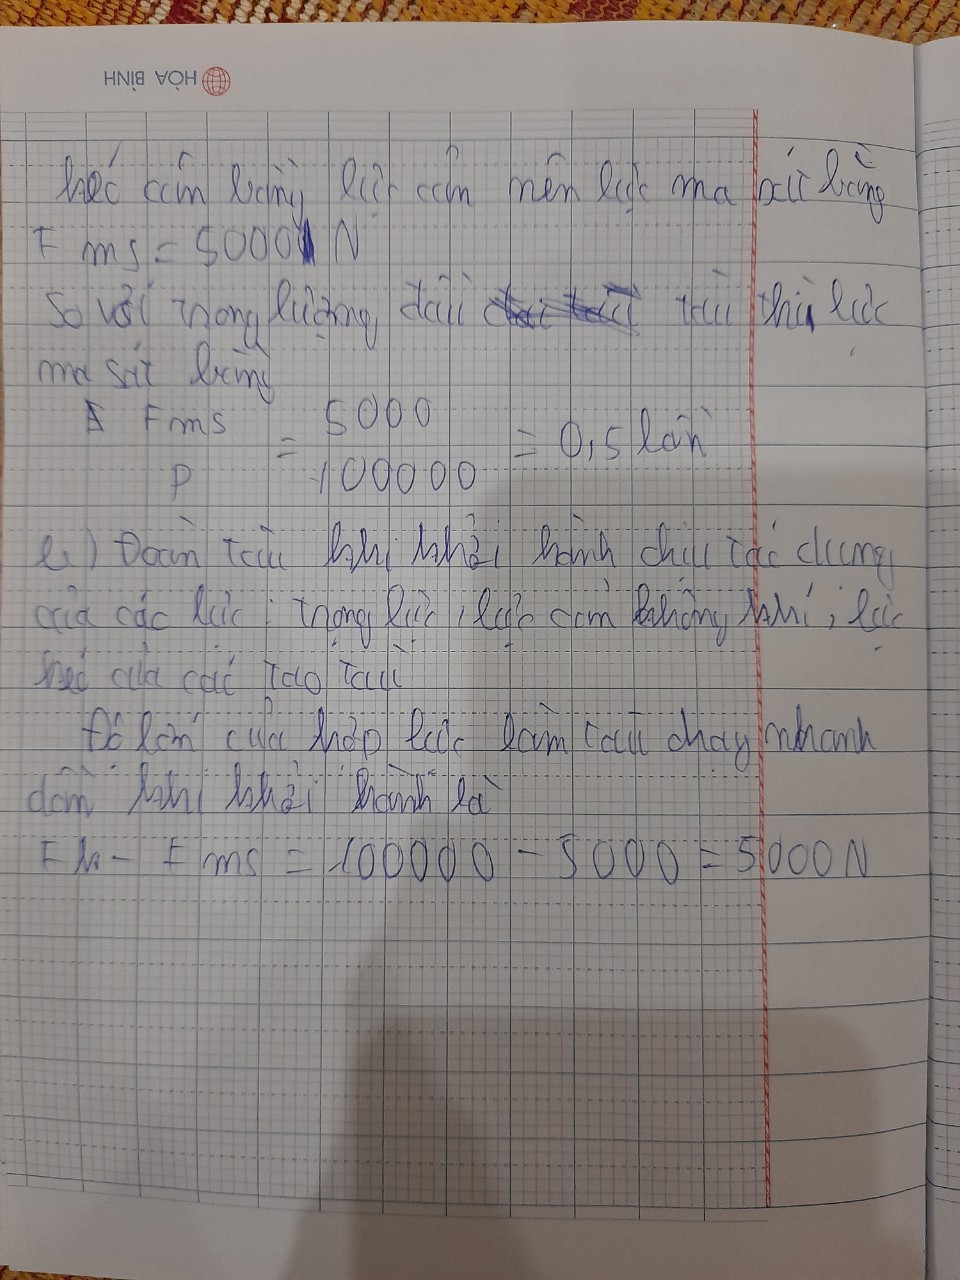 HÒA BÌNH
kéo cân bằng lực cản nên lực ma sát bằng
F ms = 5000 N
So với trọng lượng đầu tàu thì lực
ma sát bằng
F ms / P = 5000 / 100000 = 0,5 lần
b) Đoàn tàu khi khởi hành chịu tác dụng
của các lực : trọng lực, lực cản không khí, lực
kéo của các tao tàu
Độ lớn của hợp lực làm tàu chạy nhanh
dần khi khởi hành là
F k - F ms = 100000 - 5000 = 5000 N